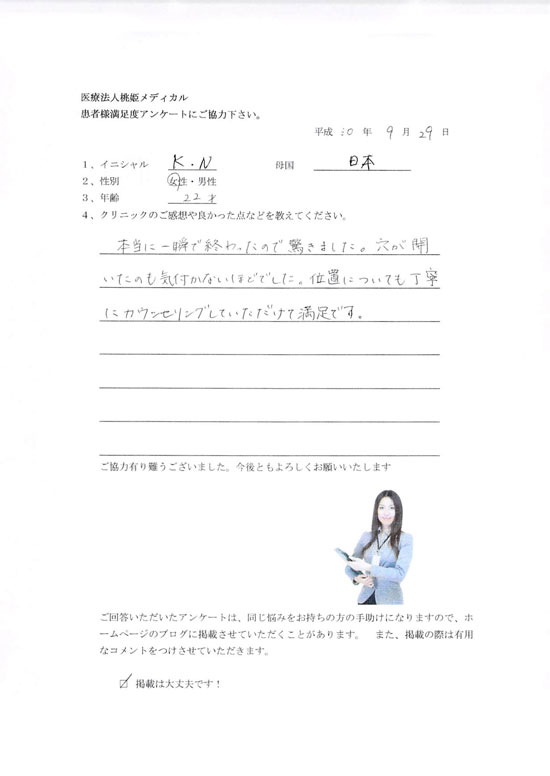 医療法人桃姫メディカル
患者様満足度アンケートにご協力下さい。
平成 30 年 9 月 29 日
1、イニシャル K・N 母国 日本
2、性別 女性・男性
3、年齢 22才
4、クリニックのご感想や良かった点などを教えてください。
本当に一瞬で終わったので驚きました。穴が開
いたのも気付かないほどでした。位置についても丁寧
にカウンセリングしていただけて満足です。
ご協力有り難うございました。今後ともよろしくお願いいたします
ご回答いただいたアンケートは、同じ悩みをお持ちの方の手助けになりますので、ホ
ームページのブログに掲載させていただくことがあります。 また、掲載の際は有用
なコメントをつけさせていただきます。
☑ 掲載は大丈夫です！